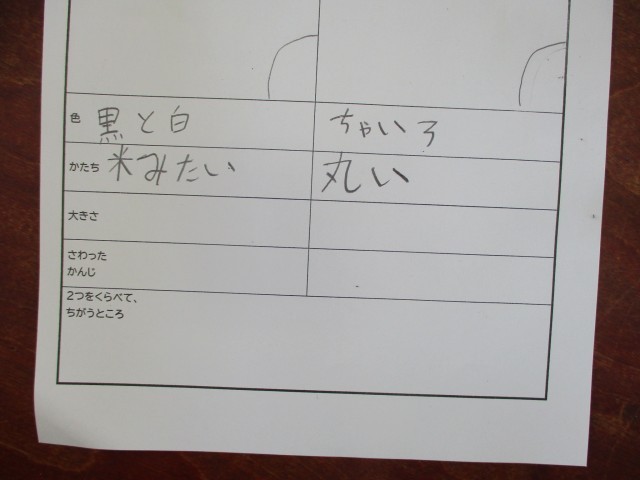 色 黒と白 ちゃいろ
かたち 米みたい 丸い
大きさ
さわった
かんじ
2つをくらべて、
ちがうところ